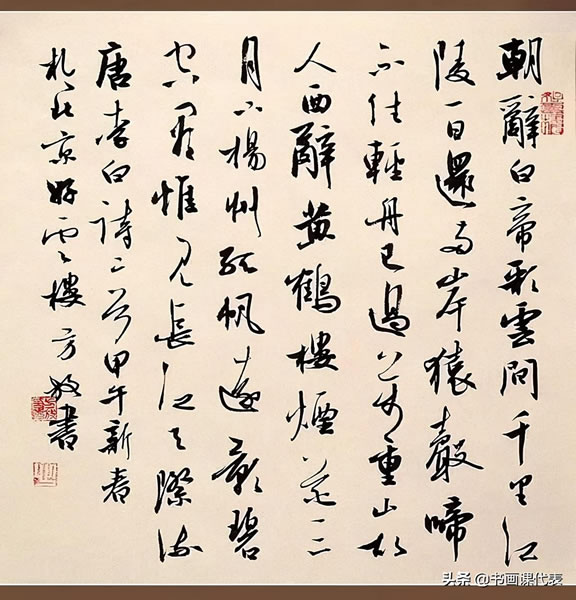 朝辭白帝彩雲間千里江
陵一日還兩岸猿聲啼
不住輕舟已過萬重山故
人西辭黃鶴樓煙花三
月下楊州孤帆遠影碧
空盡惟見長江天際流
唐李白詩二首甲午新春
於北京好雲樓方放書
头条 @书画课代表